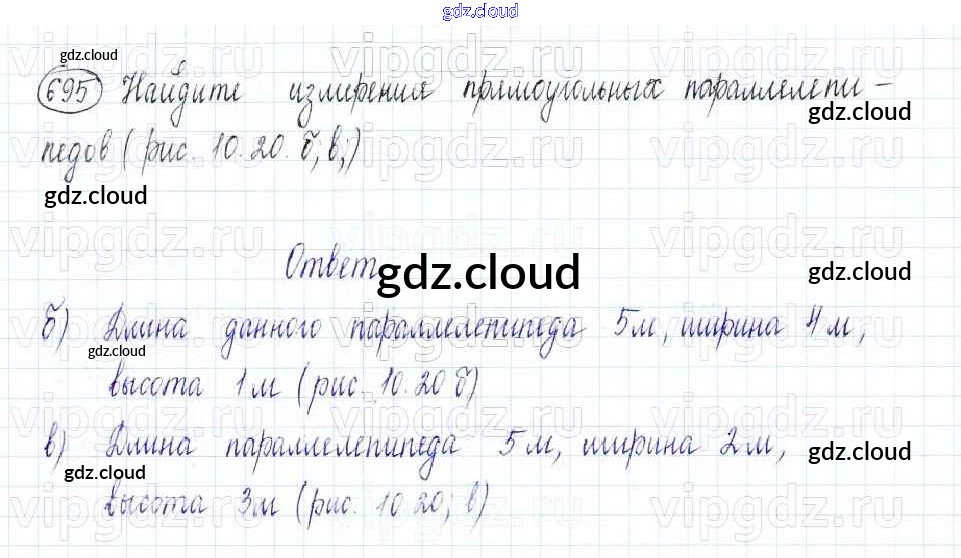 gdz.cloud
gdz.cloud
695 Найдите измерения прямоугольных параллелепи-
gdz.cloud
педов (рис. 10.20. б; в;)
gdz.cloud
vipgdz.ru vipgdz.ru vipgdz.ru
Ответ
gdz.cloud gdz.cloud
б) Длина данного параллелепипеда 5м, ширина 4м,
gdz.cloud
высота 1м (рис. 10.20 б)
в) Длина параллелепипеда 5м, ширина 2м,
gdz.cloud gdz.cloud
высота 3м (рис. 10 20; в)